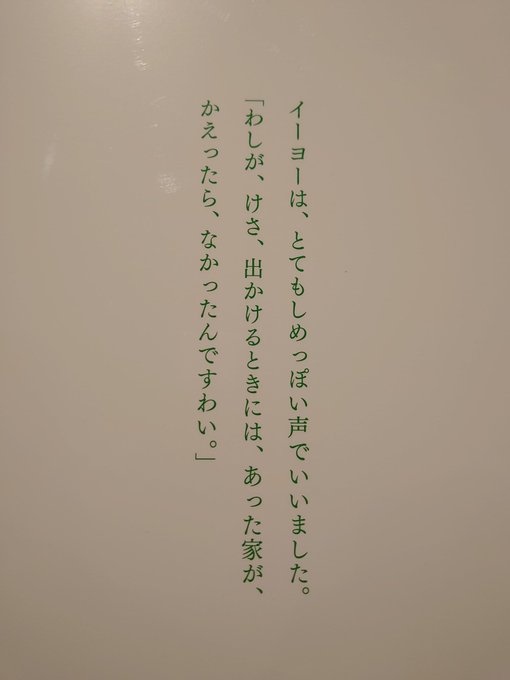 イーヨーは、とてもしめっぽい声でいいました。
「わしが、けさ、出かけるときには、あった家が、
かえったら、なかったんですわい。」